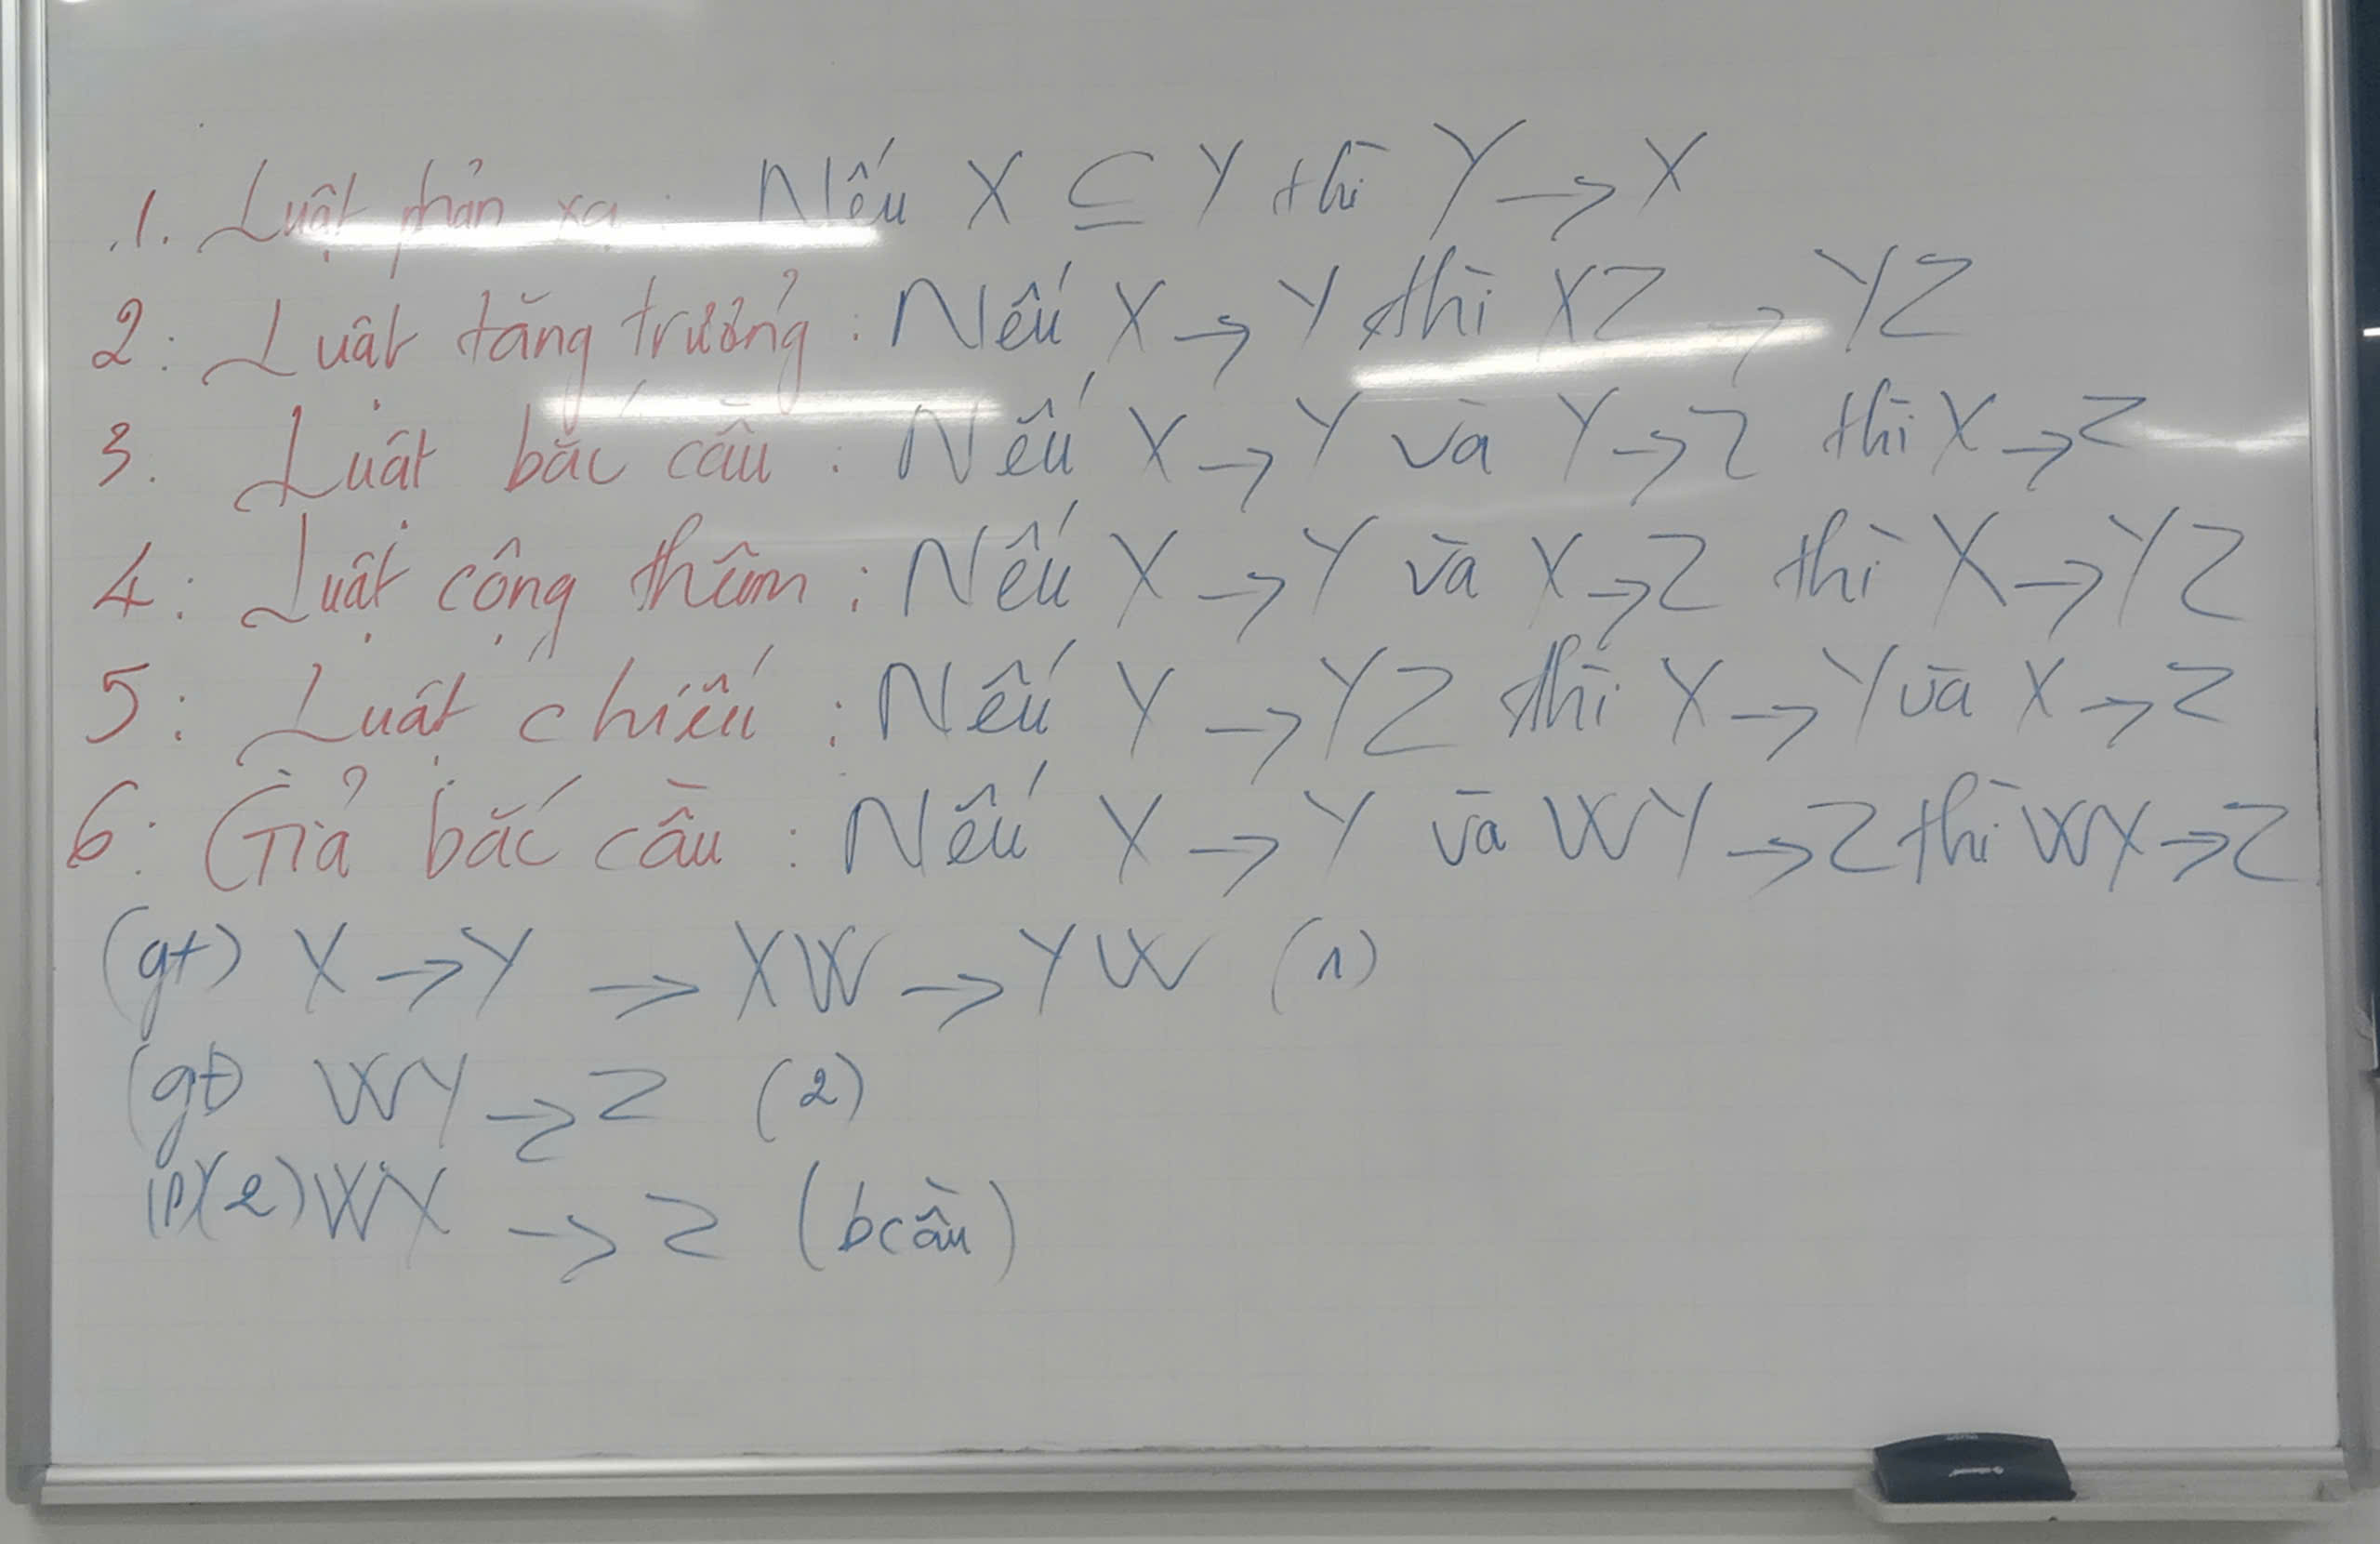 1. Luật phản xạ : Nếu X ⊆ Y thì Y → X
2: Luật tăng trưởng : Nếu X → Y thì XZ → YZ
3. Luật bắc cầu : Nếu X → Y và Y → Z thì X → Z
4: Luật cộng thêm : Nếu X → Y và X → Z thì X → YZ
5: Luật chiếu : Nếu Y → YZ thì X → Y và X → Z
6: Giả bắc cầu : Nếu X → Y và WY → Z thì WX → Z
(gt) X → Y → XW → YW (1)
(gt) WY → Z (2)
(1)(2) WX → Z (bcầu)